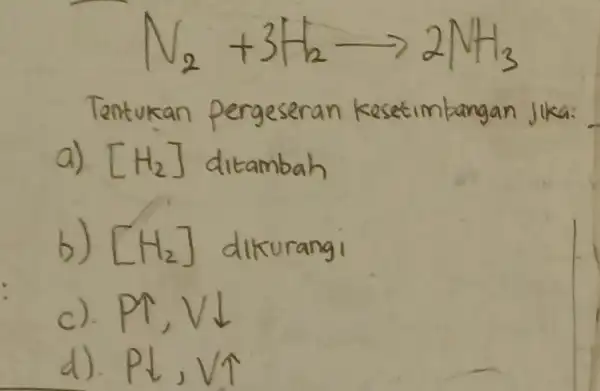 N₂ + 3H₂ → 2NH₃
Tentukan pergeseran kesetimbangan jika:
a) [H₂] ditambah
b) [H₂] dikurangi
c). P↑, V↓
d). P↓, V↑